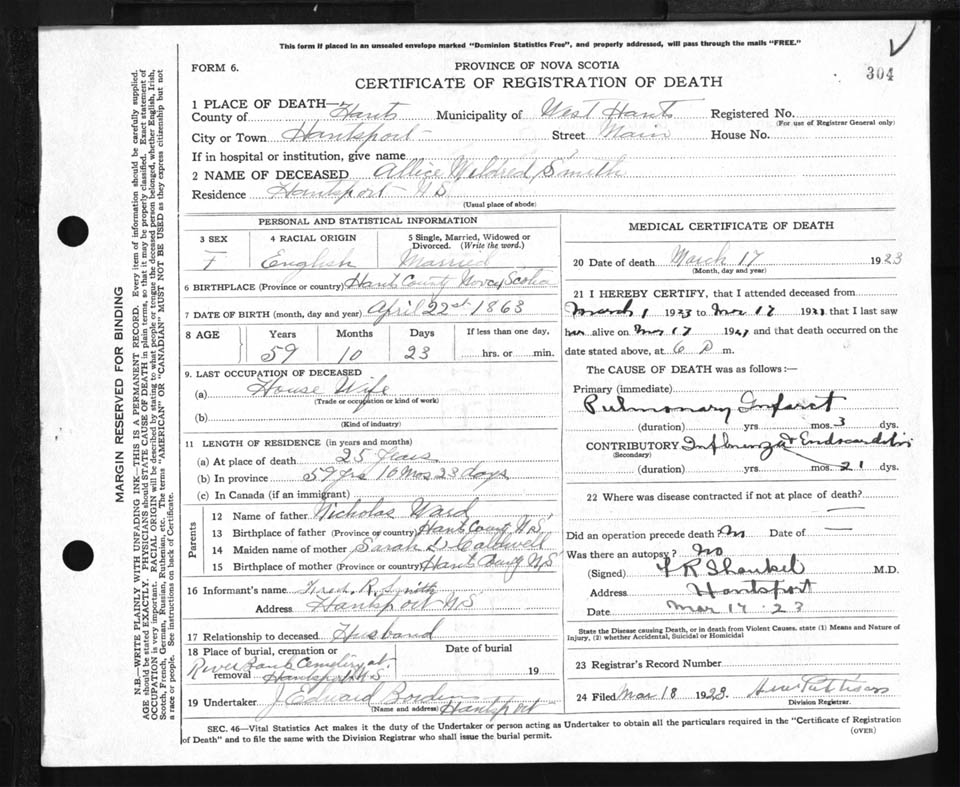 This form if placed in an unsealed envelope marked "Dominion Statistics Free", and properly addressed, will pass through the mails "FREE."
304
FORM 6.
PROVINCE OF NOVA SCOTIA
CERTIFICATE OF REGISTRATION OF DEATH
1 PLACE OF DEATH—
County of Hants Municipality of West Hants Registered No.
(For use of Registrar General only)
City or Town Hantsport Street Main House No.
If in hospital or institution, give name
2 NAME OF DECEASED Allice Mildred Smith
Residence Hantsport N S
(Usual place of abode)
PERSONAL AND STATISTICAL INFORMATION
3 SEX 4 RACIAL ORIGIN 5 Single, Married, Widowed or Divorced. (Write the word.)
F English Married
6 BIRTHPLACE (Province or country) Hants County Nova Scotia
7 DATE OF BIRTH (month, day and year) April 22st 1863
8 AGE Years Months Days If less than one day,
59 10 23 hrs. or min.
9. LAST OCCUPATION OF DECEASED
(a) House Wife
(Trade or occupation or kind of work)
(b)
(Kind of industry)
11 LENGTH OF RESIDENCE (in years and months)
(a) At place of death 25 Years
(b) In province 59 yrs 10 Mos 23 days
(c) In Canada (if an immigrant)
Parents
12 Name of father Nicholas Ward
13 Birthplace of father (Province or country) Hants County N.S
14 Maiden name of mother Sarah Caldwell
15 Birthplace of mother (Province or country) Hants County N.S
16 Informant's name R. Smith
Address Hantsport N S
17 Relationship to deceased Husband
18 Place of burial, cremation or removal Date of burial
River Bank Cemetery at Hantsport N S 19
19 Undertaker J Edward Borden
(Name and address) Hantsport
MEDICAL CERTIFICATE OF DEATH
20 Date of death March 17 1923
(Month, day and year)
21 I HEREBY CERTIFY, that I attended deceased from
March 1 1923 to Mar 17 1923 that I last saw
her alive on Mar 17 1923 and that death occurred on the
date stated above, at 6 P m.
The CAUSE OF DEATH was as follows:—
Primary (immediate)
Pulmonary Infarct
(duration) yrs. mos. 3 dys.
CONTRIBUTORY Influenza & Endocarditis
(Secondary)
(duration) yrs. mos. 21 dys.
22 Where was disease contracted if not at place of death?
Did an operation precede death? No Date of
Was there an autopsy? No
(Signed) R Shankel M.D.
Address Hantsport
Date Mar 17 - 23
State the Disease causing Death, or in death from Violent Causes, state (1) Means and Nature of Injury, (2) whether Accidental, Suicidal or Homicidal
23 Registrar's Record Number
24 Filed Mar 18 1923.
Division Registrar.
SEC. 46—Vital Statistics Act makes it the duty of the Undertaker or person acting as Undertaker to obtain all the particulars required in the "Certificate of Registration
of Death" and to file the same with the Division Registrar who shall issue the burial permit.
(OVER)
MARGIN RESERVED FOR BINDING
N.B.—WRITE PLAINLY WITH UNFADING INK—THIS IS A PERMANENT RECORD. Every item of information should be carefully supplied.
AGE should be stated EXACTLY. PHYSICIANS should STATE CAUSE OF DEATH in plain terms, so that it may be properly classified. Exact statement of
OCCUPATION is very important. RACIAL ORIGIN will be described by stating to what people or tongue the deceased person belonged, whether English, Irish,
Scotch, French, German, Russian, Ruthenian, etc. The terms "AMERICAN" OR "CANADIAN" MUST NOT BE USED as they express citizenship but not
a race or people. See instructions on back of Certificate.